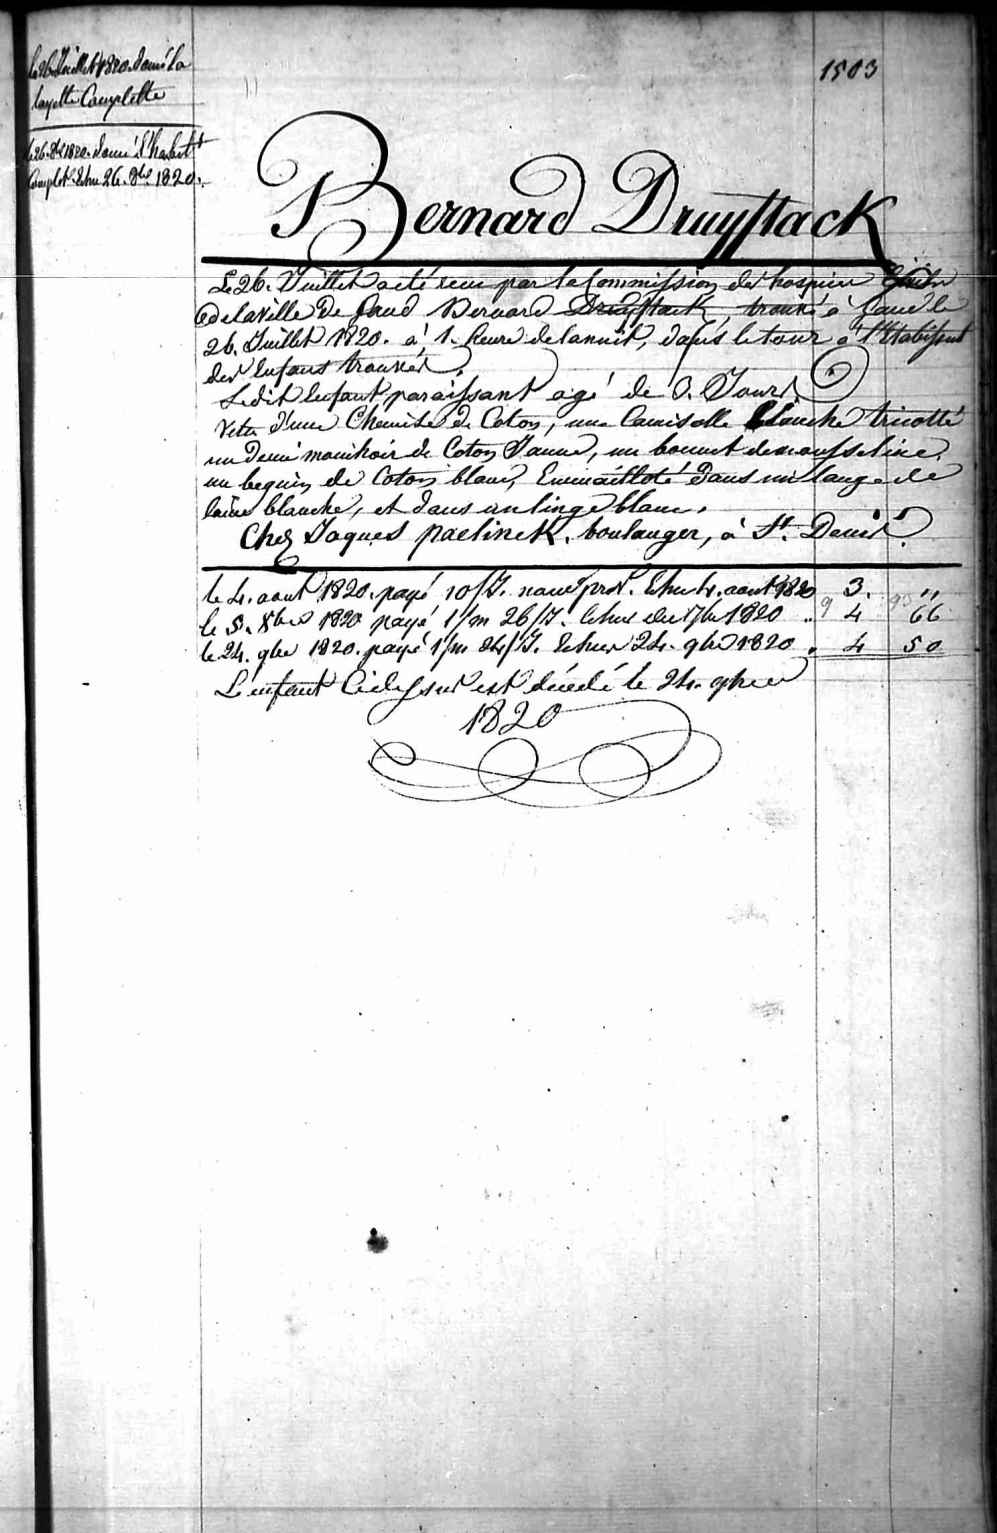 le 26 Juillet 1820. donné la
layette Complette
le 26. 8bre 1820. donné
Complet. Echu 26. 8bre 1820.
1503
Bernard Druystack
Le 26. Juillet a été recu par la Commission des hospices Civils
de la ville de Gand Bernard Druystack, trouvé à Gand le
26. Juillet 1820. à 1. heure de la nuit, dans le tour à l'Etablissmt
des Enfans trouvés.
Le dit Enfant paraissant agé de 0. Jours.
Vetu d'une Chemise de Coton, une Camisolle blanche tricotté
un demi mouchoir de Coton Jaune, un bonnet de mousseline,
un beguin de Coton blanc, Emmailloté dans un lange de
laine blanche, et dans un linge blanc.
Chez Jaques paelinck, boulanger, à St. Denis.
le 4. aout 1820. payé 10/J. Echu 4. aout 1820 3. "
le 5. 1820 payé 1/m 26/J. 1820 " 4 66
le 24. 9bre 1820. payé 1/m 24/J. Echu 24. 9bre 1820 " 4 50
L'enfant Cidessus est décédé le 24. 9bre
1820